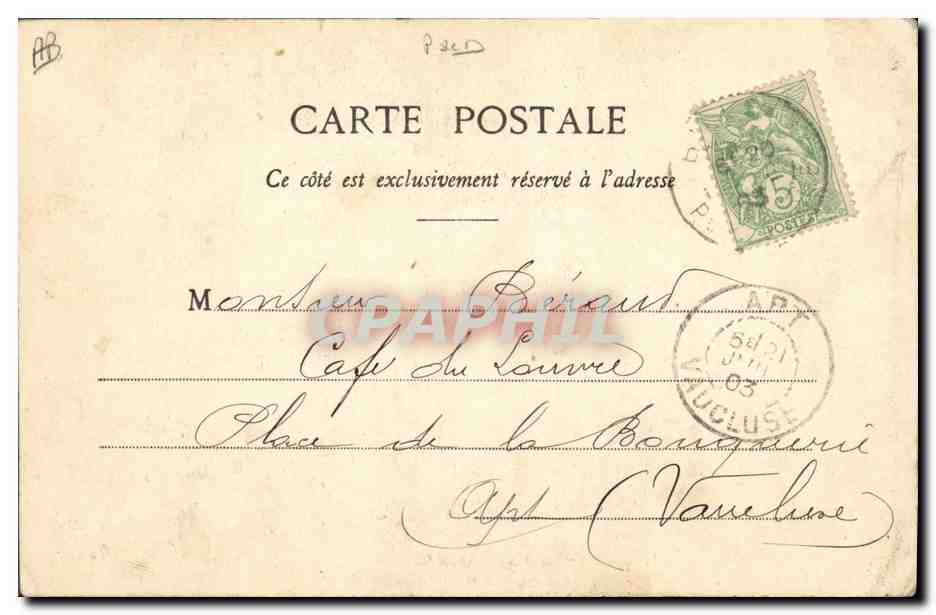 AB
CARTE POSTALE
Ce côté est exclusivement réservé à l'adresse
5
POSTES
20
03
Monsieur Béraud
CPAPHIL
Café du Louvre
Place de la Bouquerie
Apt (Vaucluse)
APT
21
JUIN
03
VAUCLUSE